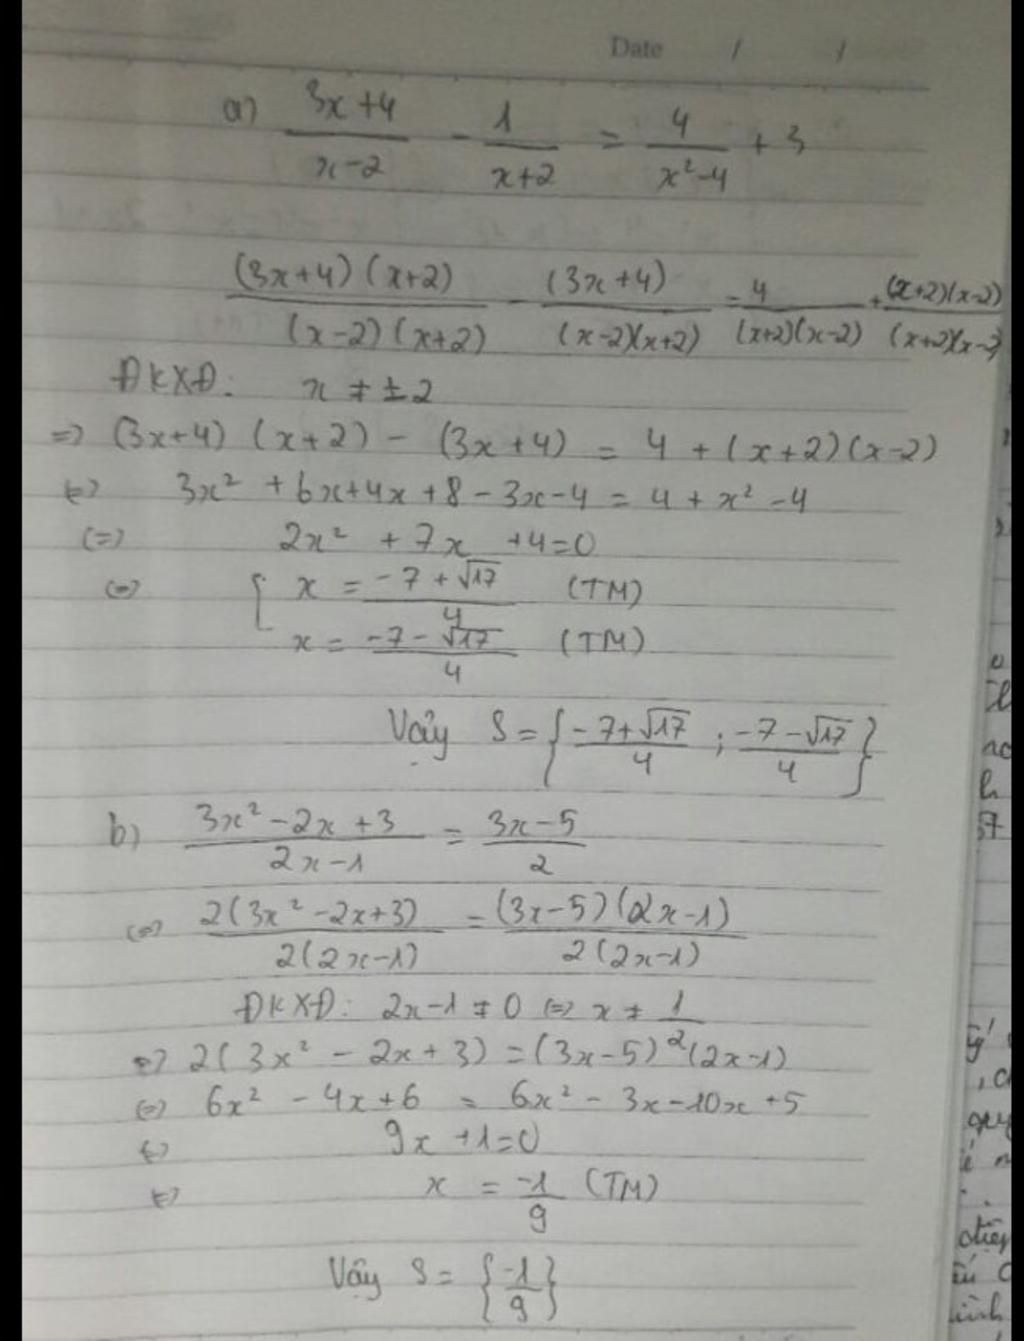 Date / /
a) (3x+4)/(x-2) - 1/(x+2) = 4/(x²-4) + 3
((3x+4)(x+2))/((x-2)(x+2)) - (3x+4)/((x-2)(x+2)) = 4/((x+2)(x-2)) + ((x+2)(x-2))/((x+2)(x-2)
ĐKXĐ: x ≠ ±2
=> (3x+4) (x+2) - (3x+4) = 4 + (x+2)(x-2)
<=> 3x² + 6x+4x+8-3x-4 = 4 + x² -4
<=> 2x² + 7x +4=0
<=> [ x = (-7+√17)/4 (TM)
x = (-7-√17)/4 (TM)
Vậy S = { (-7+√17)/4 ; (-7-√17)/4 }
b) (3x²-2x+3)/(2x-1) = (3x-5)/2
<=> (2(3x²-2x+3))/(2(2x-1)) = ((3x-5)(2x-1))/(2(2x-1))
ĐKXĐ: 2x-1 ≠ 0 <=> x ≠ 1/2
=> 2(3x² - 2x+3) = (3x-5)(2x-1)
<=> 6x² - 4x+6 = 6x² - 3x-10x+5
<=> 9x+1=0
<=> x = -1/9 (TM)
Vậy S = { -1/9 }